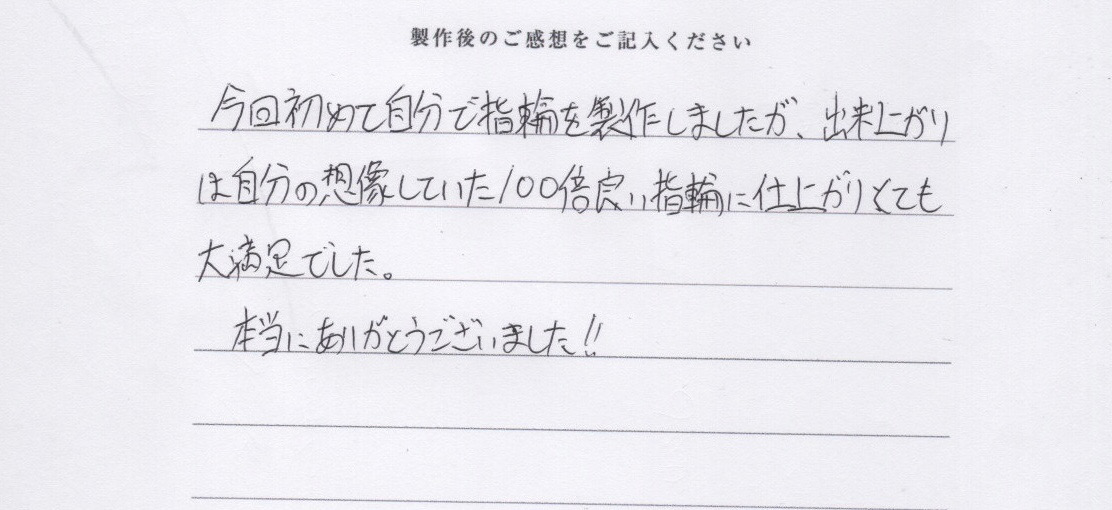 製作後のご感想をご記入ください
今回初めて自分で指輪を製作しましたが、出来上がり
は自分の想像していた100倍良い指輪に仕上がりとても
大満足でした。
本当にありがとうございました!!